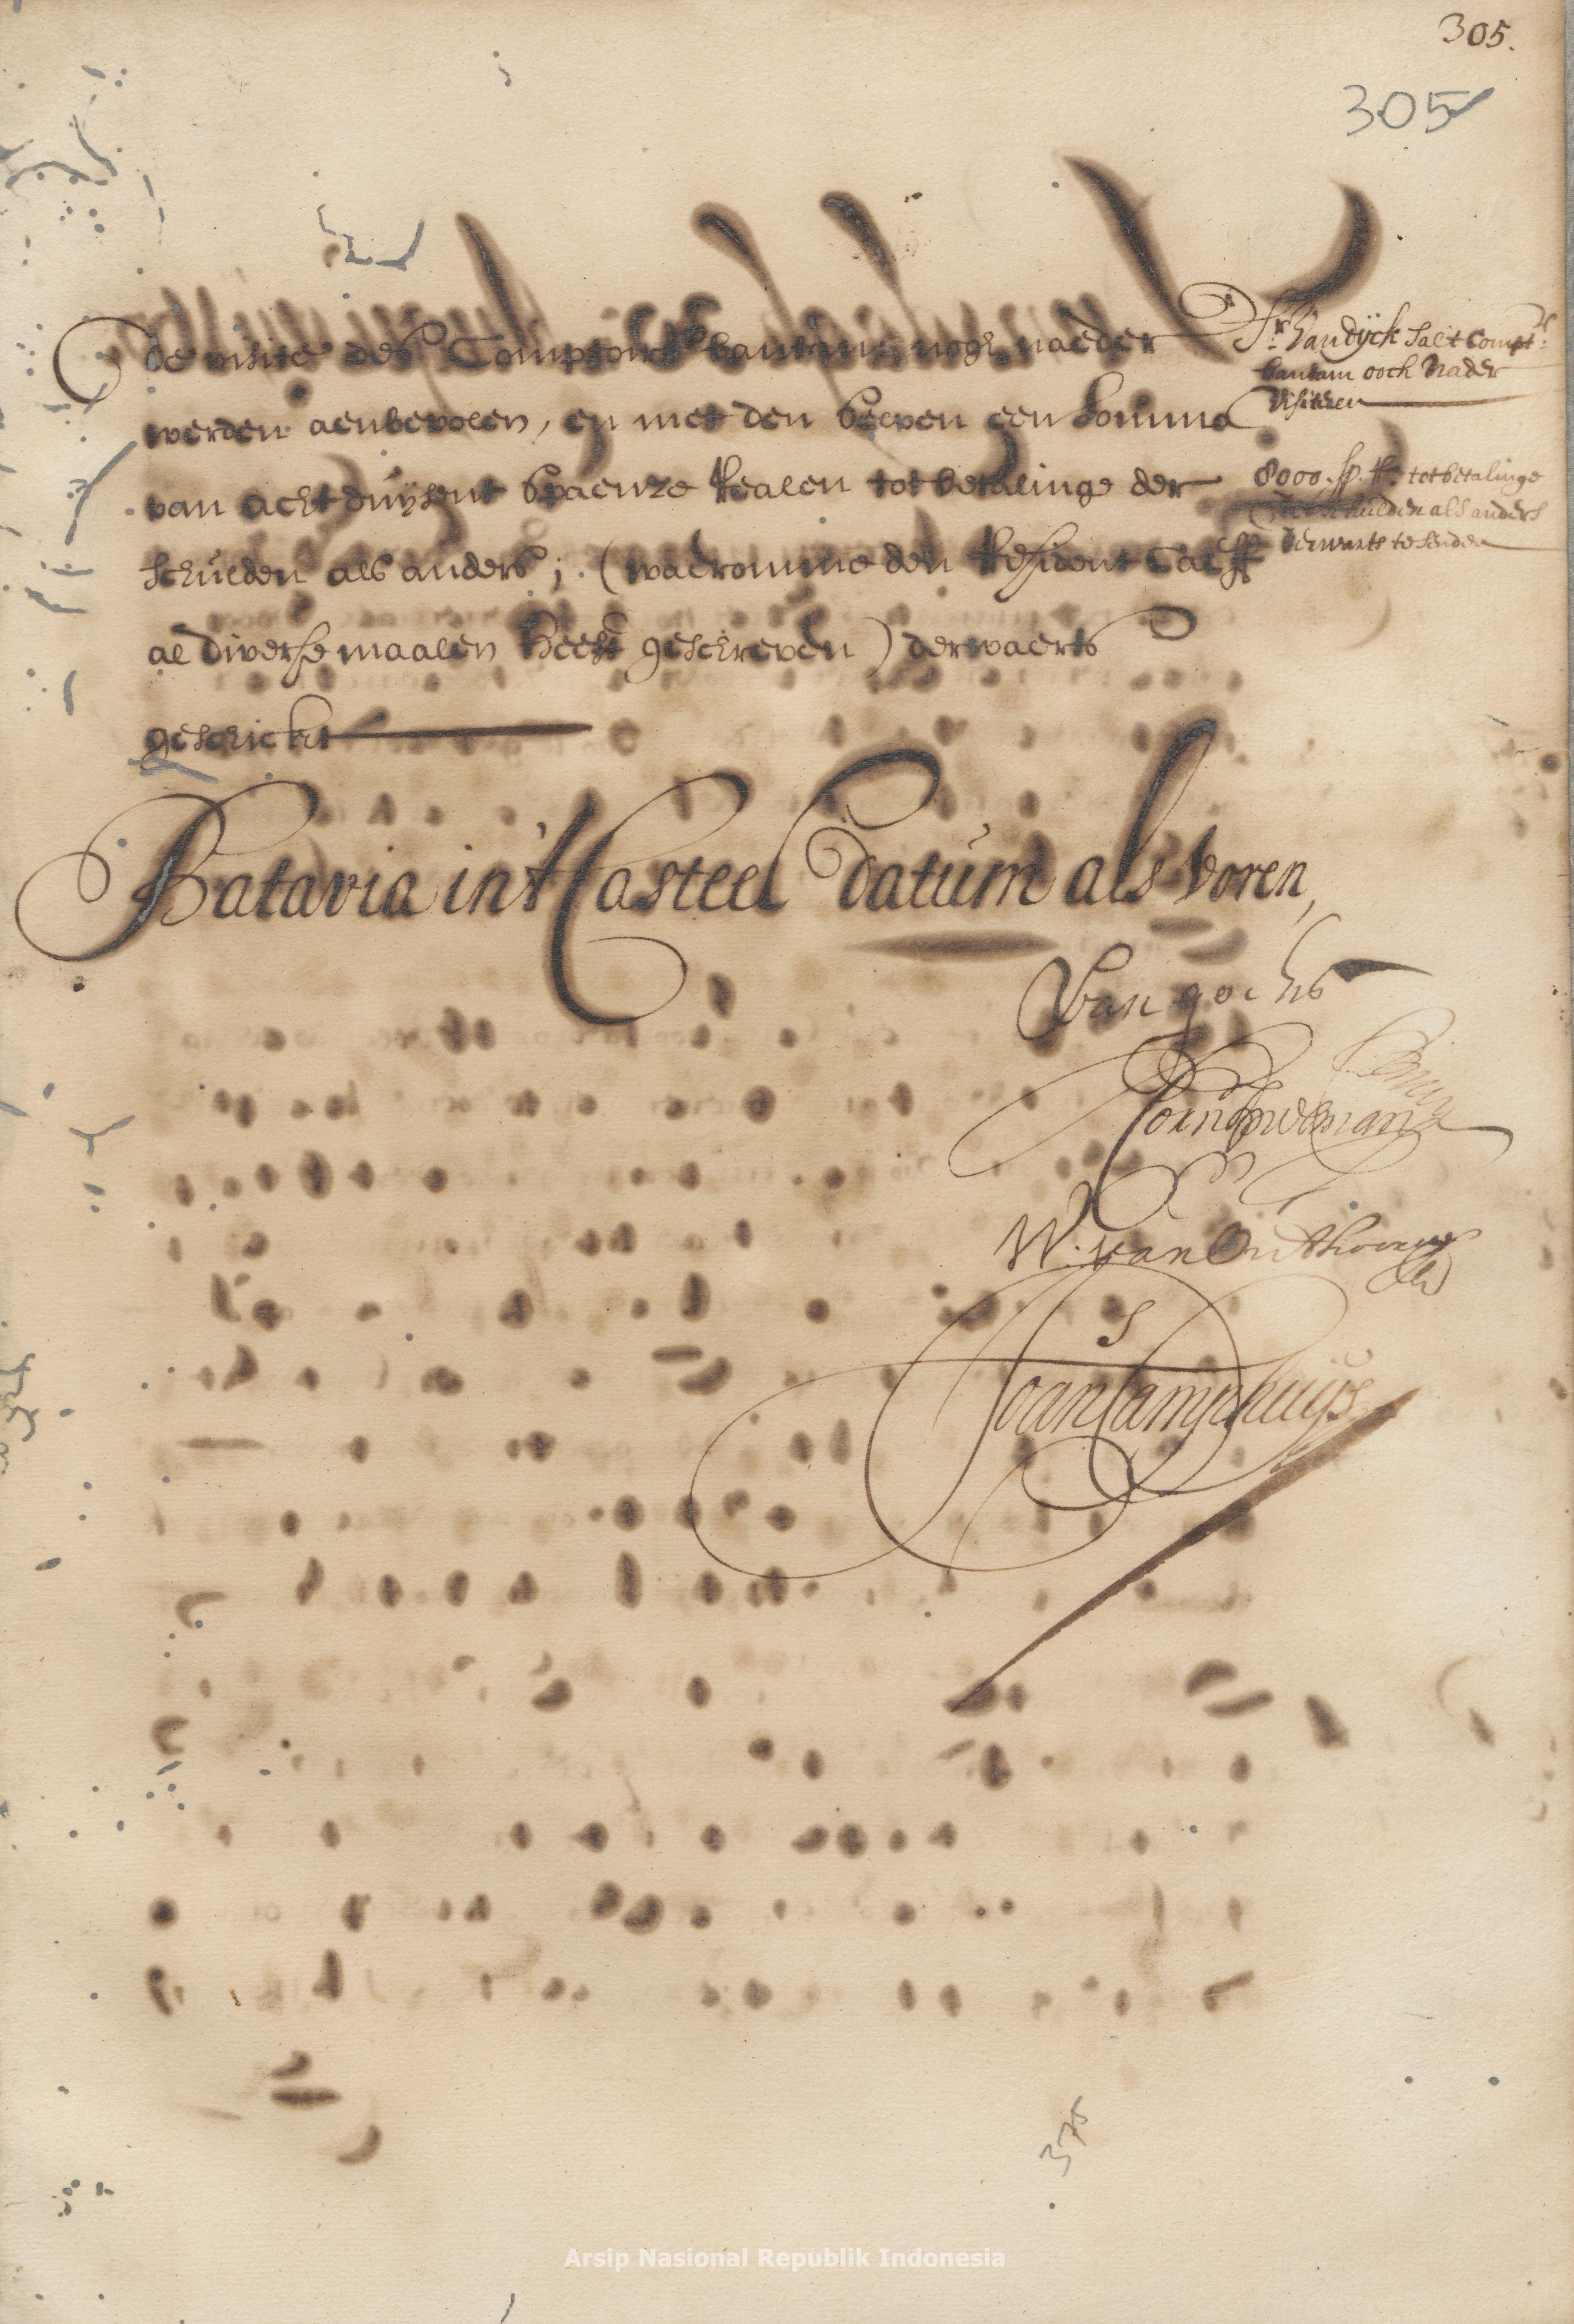 305.
305
de visite des Comptoirs bantam, nogh naeder
werden aenbevolen, en met den selven een somma
van acht duijsent spaenze Realen tot betalinge der
schulden als anders; (waeromme den Resident Caeff
al diverse maalen heeft geschreven) derwaerts
geschickt
Sr. van dijck sal 't Compt:
bantam ooch Nader
visiteren
8000. sp. Rs. tot betalinge
schulden als anders
derwaarts te senden
Batavia in 't Casteel datum als voren,
Van goens
Corn. Speelman
W. van Outhoorn
Joan Camphuijs
375
Arsip Nasional Republik Indonesia